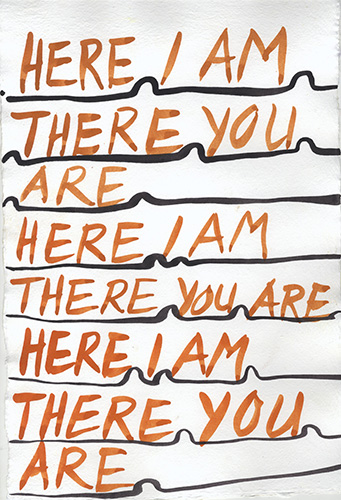 HERE I AM
THERE YOU
ARE
HERE I AM
THERE YOU ARE
HERE I AM
THERE YOU
ARE